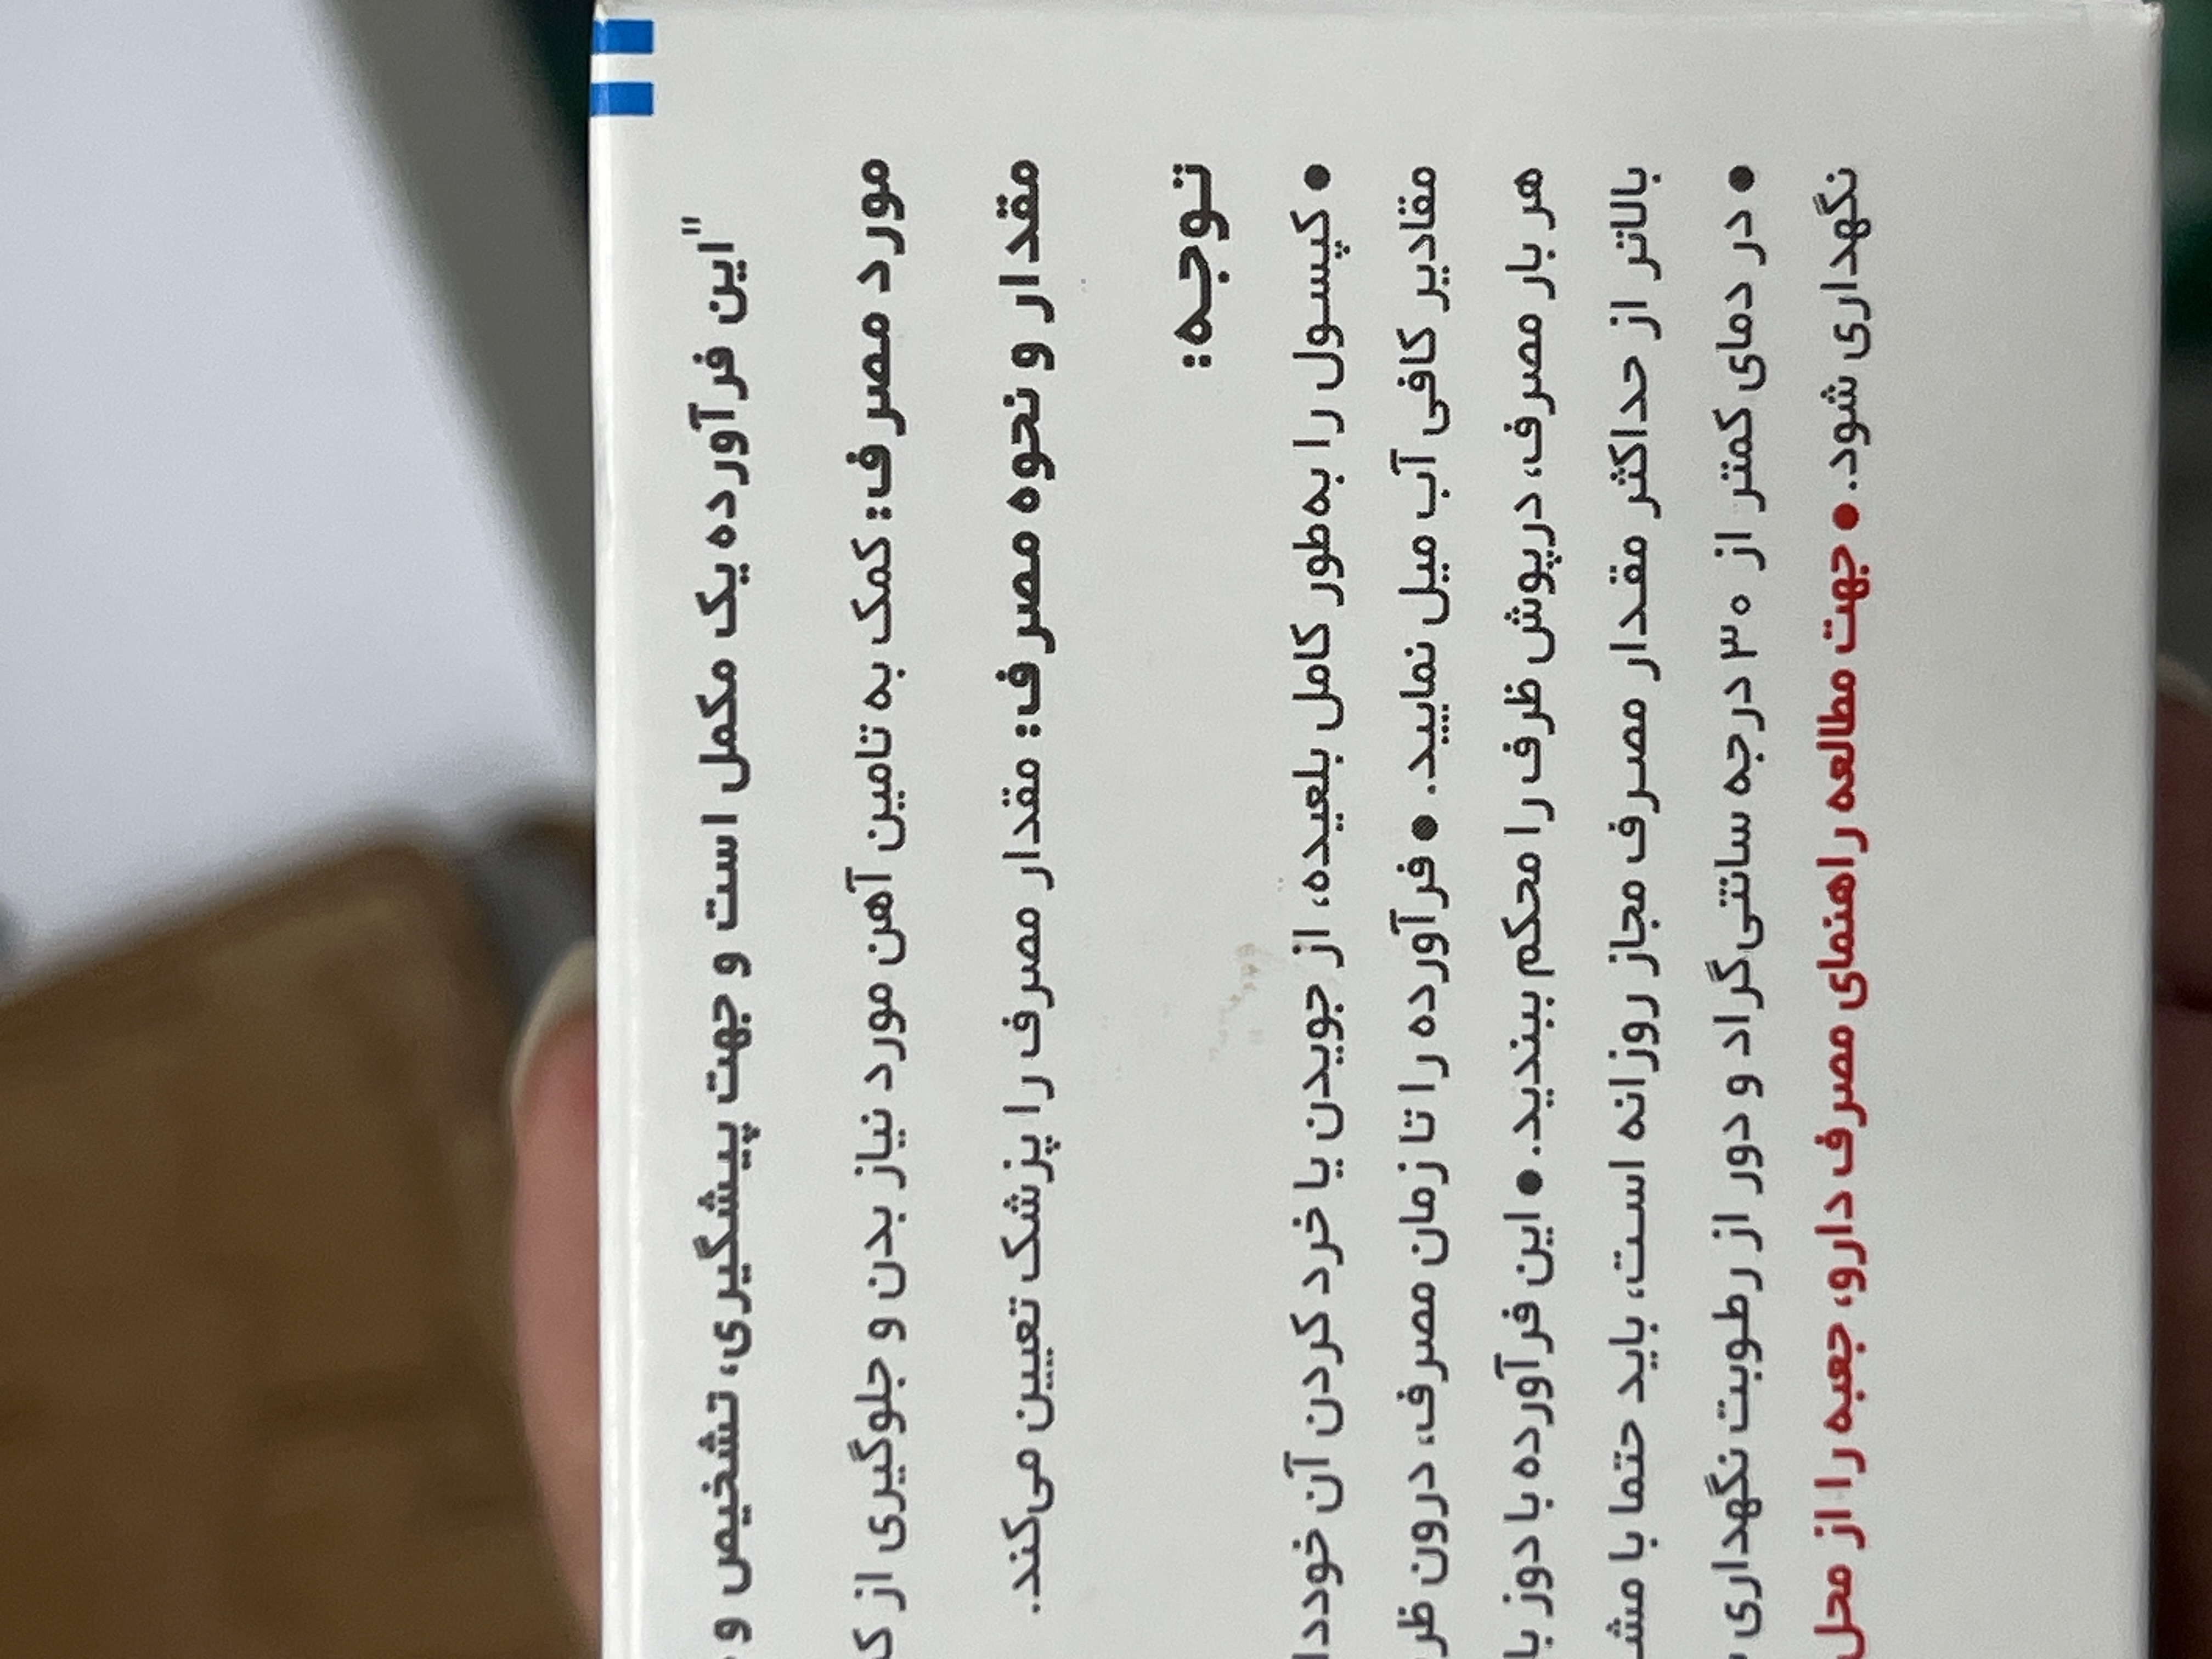 "این فرآورده یک مکمل است و جهت پیشگیری، تشخیص و
مورد مصرف: کمک به تامین آهن مورد نیاز بدن و جلوگیری از
مقدار و نحوه مصرف: مقدار مصرف را پزشک تعیین می‌کند.
توجه:
● کپسول را به‌طور کامل بلعیده، از جویدن یا خرد کردن آن
مقادیر کافی آب میل نمایید. ● فرآورده را تا زمان مصرف، درون
هر بار مصرف، درپوش ظرف را محکم ببندید. ● این فرآورده با دوز
بالاتر از حداکثر مقدار مصرف مجاز روزانه است، باید حتما با
● در دمای کمتر از ۳۰ درجه سانتی‌گراد و دور از رطوبت نگهداری
نگهداری شود. ● جهت مطالعه راهنمای مصرف دارو، جعبه را از محل